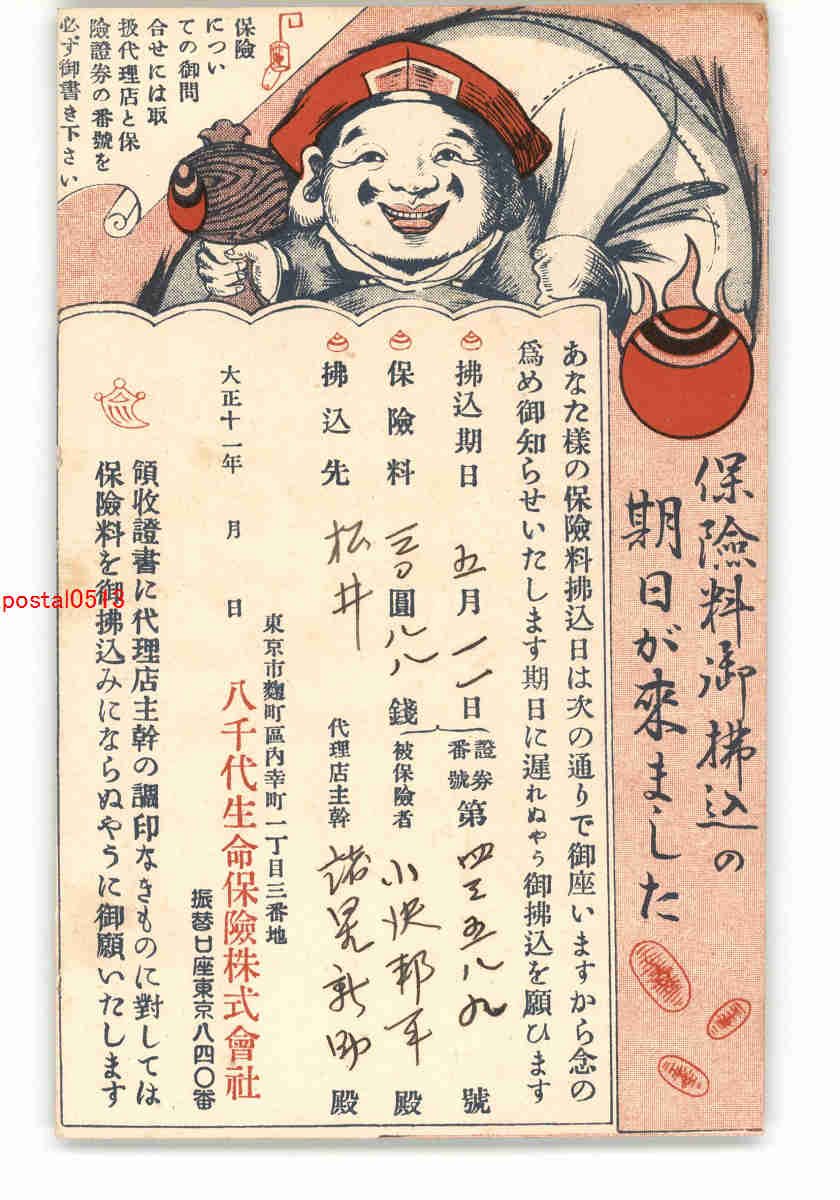 保險料御拂込の
期日が來ました
あなた樣の保險料拂込日は次の通りで御座いますから念の
爲め御知らせいたします期日に遲れぬやう御拂込を願ひます
拂込期日 五月一一日 證券番號 第四三五八九號
保險料 圓八八錢 被保險者 小 殿
拂込先 松井 代理店主幹 殿
大正十一年 月 日
東京市麴町區內幸町一丁目三番地
八千代生命保險株式會社
振替口座東京八四〇番
領收證書に代理店主幹の調印なきものに對しては
保險料を御拂込みにならぬやうに御願いたします
保險
につい
ての御問
合せには取
扱代理店と保
險證券の番號を
必ず御書き下さい
postal0513